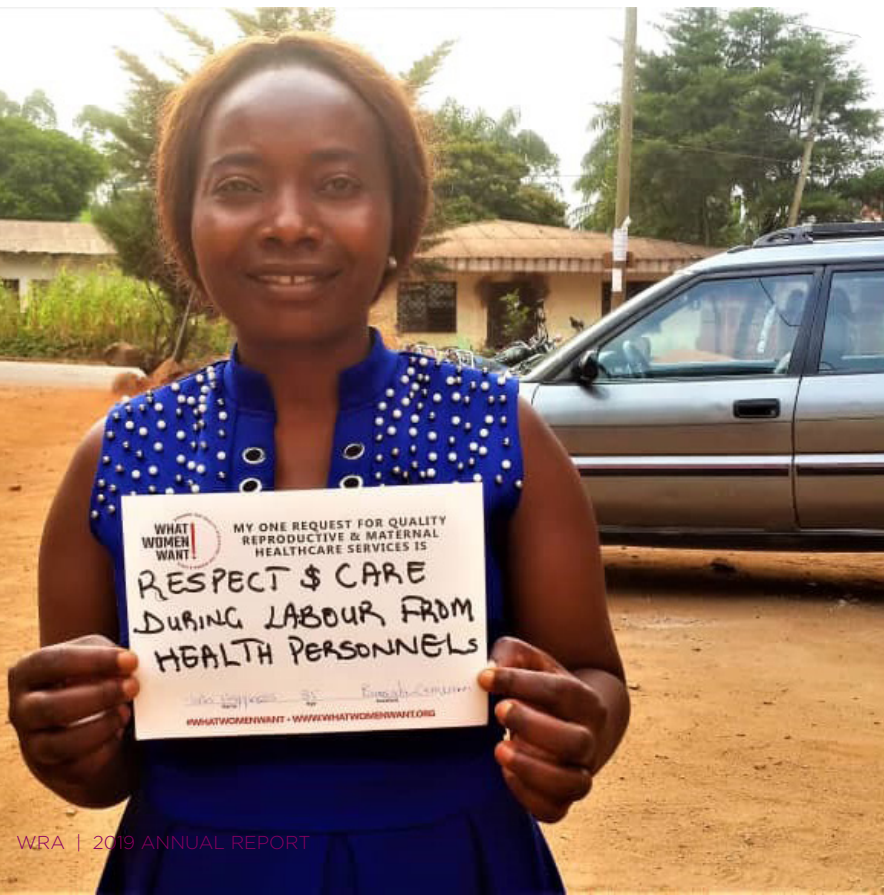 WHAT
WOMEN
WANT!
MY ONE REQUEST FOR QUALITY
REPRODUCTIVE & MATERNAL
HEALTHCARE SERVICES IS
RESPECT $ CARE
DURING LABOUR FROM
HEALTH PERSONNELS
31
#WHATWOMENWANT • WWW.WHATWOMENWANT.ORG
WRA | 2019 ANNUAL REPORT